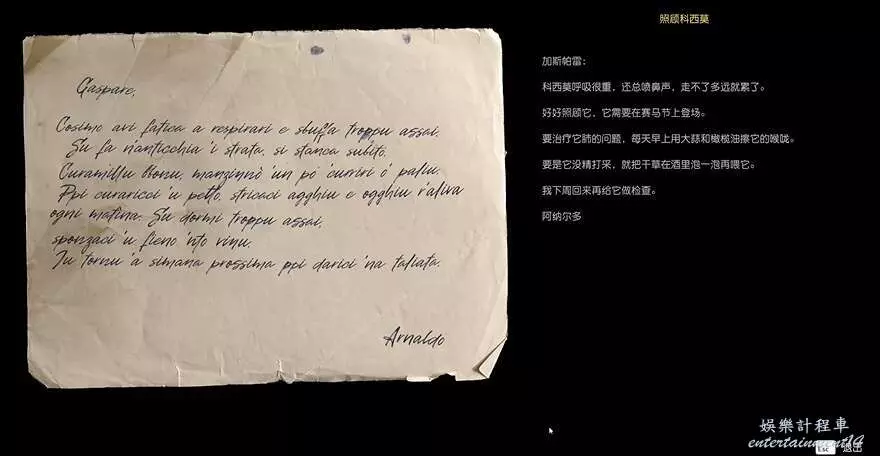 Gaspare,
Cosimo avi fatica a respirari e sbuffa troppu assai.
Su fa n'anticchia 'i strata, si stanca subito.
Curamillu bonu, manzinnò 'un pò curriri ô paliu.
Ppi curaricci 'u pettu, stricaci agghiu e ogghiu r'aliva
ogni matina. Su dormi troppu assai,
sponzaci 'u fieno 'nto vinu.
Iu tornu 'a simana prossima ppi darici 'na taliata.
Arnaldo
照顾科西莫
加斯帕雷：
科西莫呼吸很重，还总喷鼻声，走不了多远就累了。
好好照顾它，它需要在赛马节上登场。
要治疗它肺的问题，每天早上用大蒜和橄榄油擦它的喉咙。
要是它没精打采，就把干草在酒里泡一泡再喂它。
我下周回来再给它做检查。
阿纳尔多
娛樂計程車
entertainment14
Esc 退出